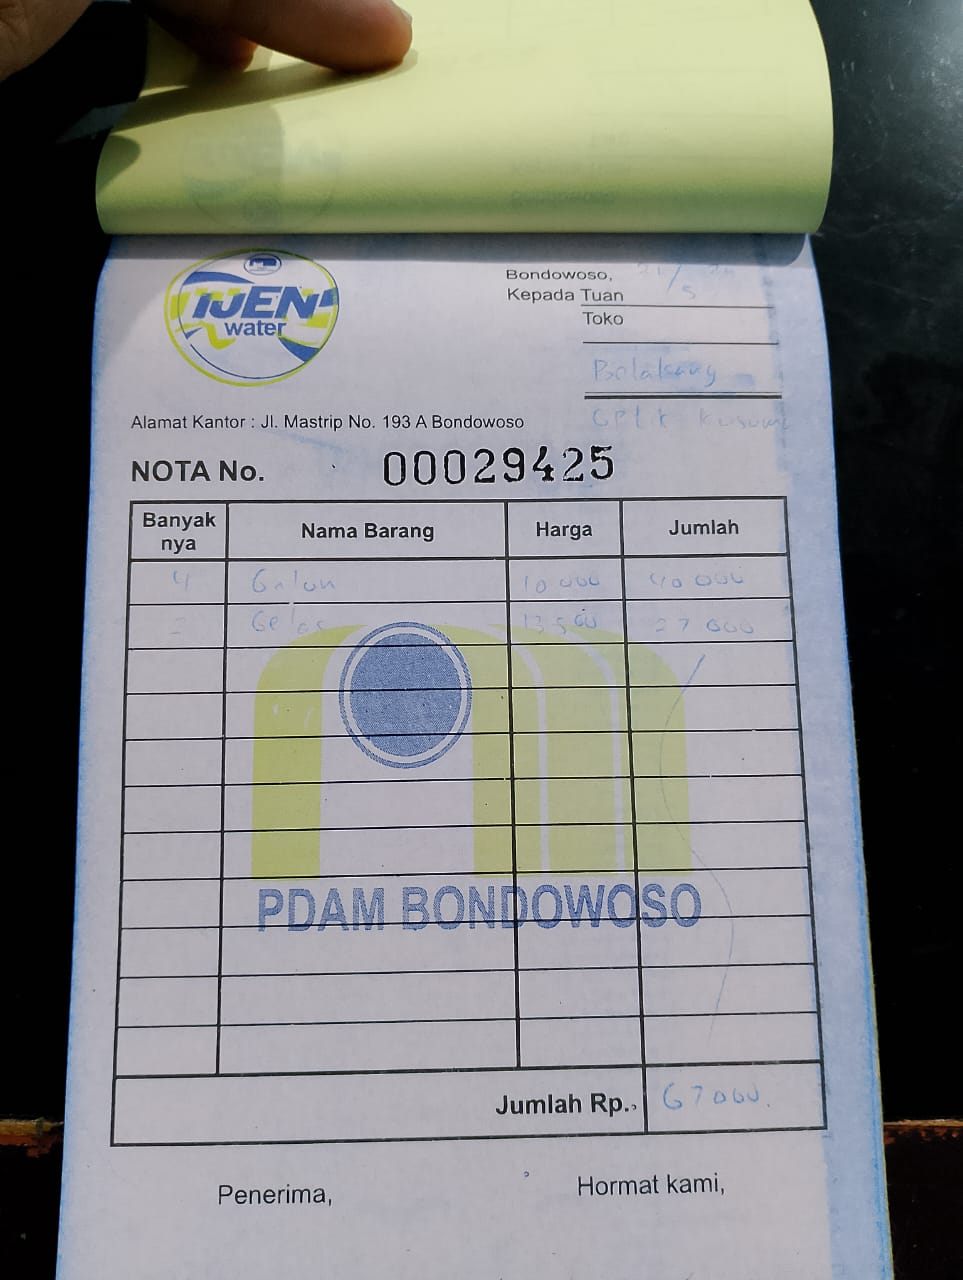 IJEN
water
Bondowoso, 21/5
Kepada Tuan
Toko
Belakang
Optik Kusuma
Alamat Kantor : Jl. Mastrip No. 193 A Bondowoso
NOTA No. 00029425
Banyak nya Nama Barang Harga Jumlah
4 Galon 10 000 40 000
2 Gelas 13 500 27 000
PDAM BONDOWOSO
Jumlah Rp. 67000.
Penerima, Hormat kami,